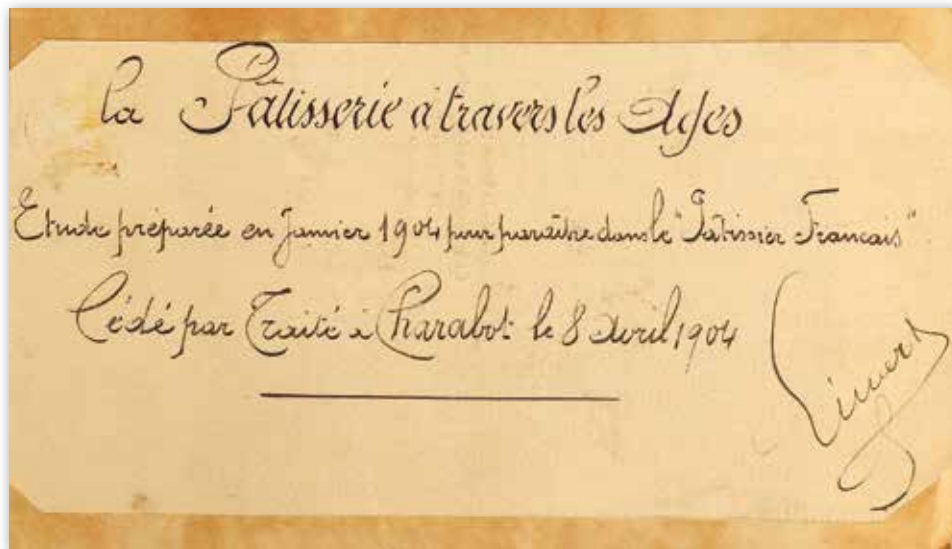 la Pâtisserie à travers les Ages
Etude préparée en Janvier 1904 pour paraître dans le "Pâtissier Francais"
Cédé par Traité à Charabot le 8 Avril 1904